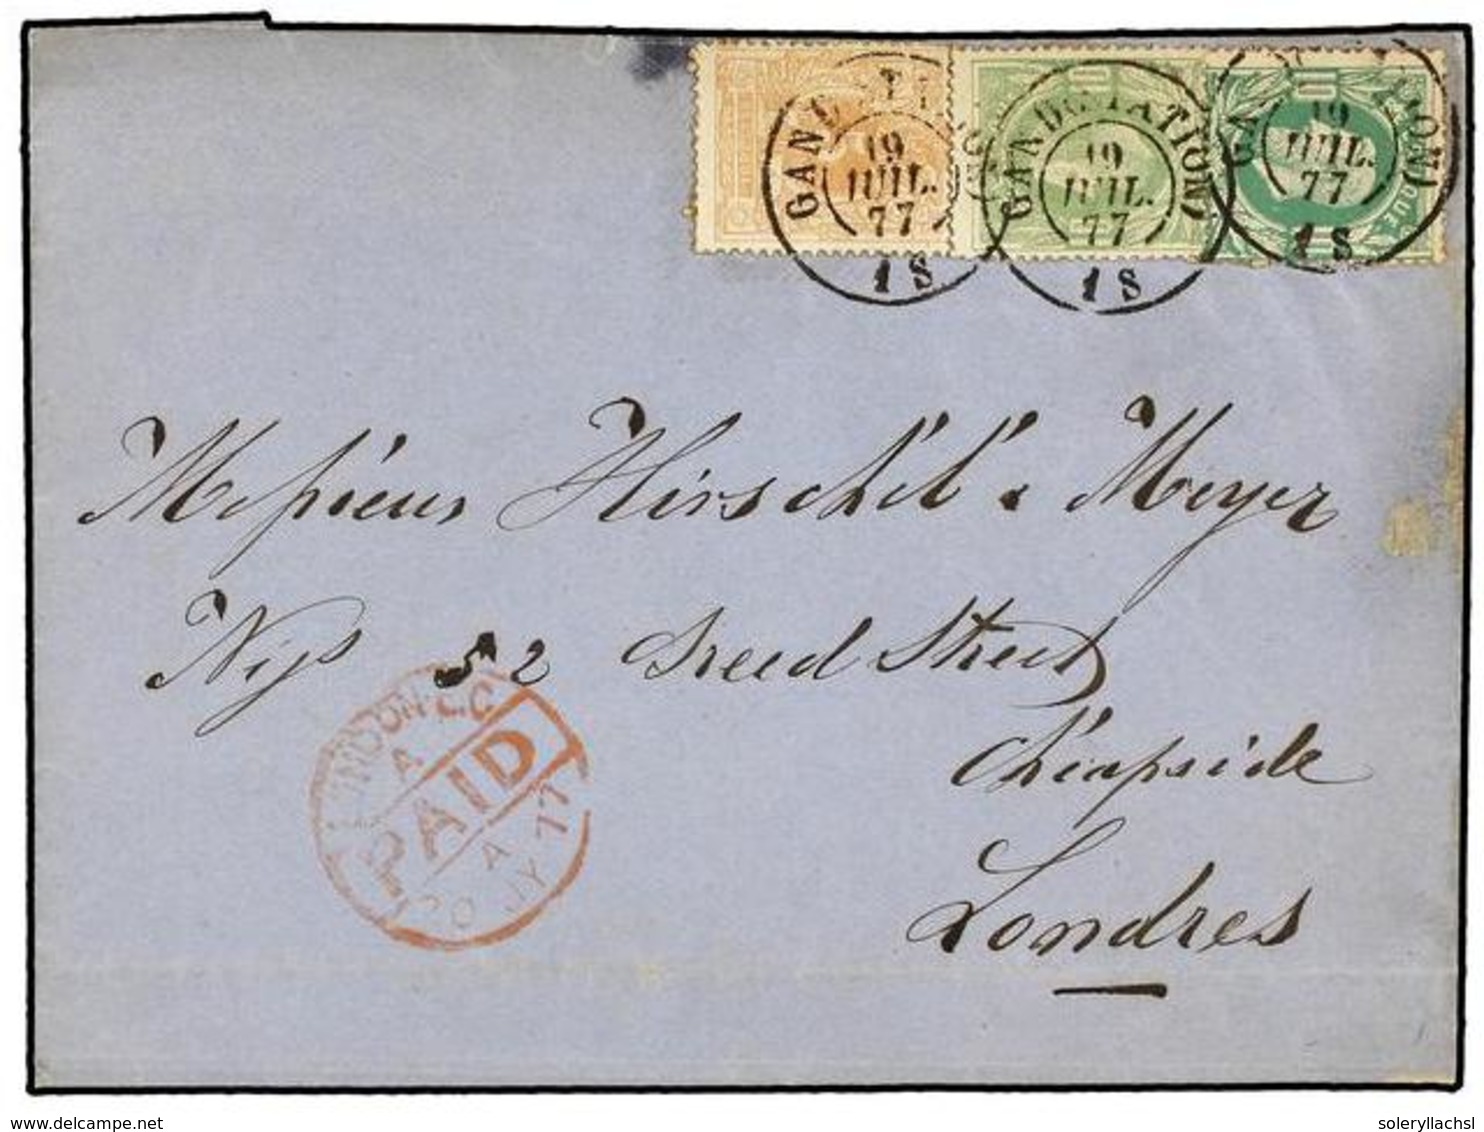 GAND (STATION)
19
JUIL.
77
1 S
GAND (STATION)
19
JUIL.
77
1 S
10
19
JUIL.
77
1 S
Messieurs Hirschel & Meyer
52 Breed Street
Cheapside
Londres
LONDON E.C
A
PAID
A
20 JY 77
soleryllachsl